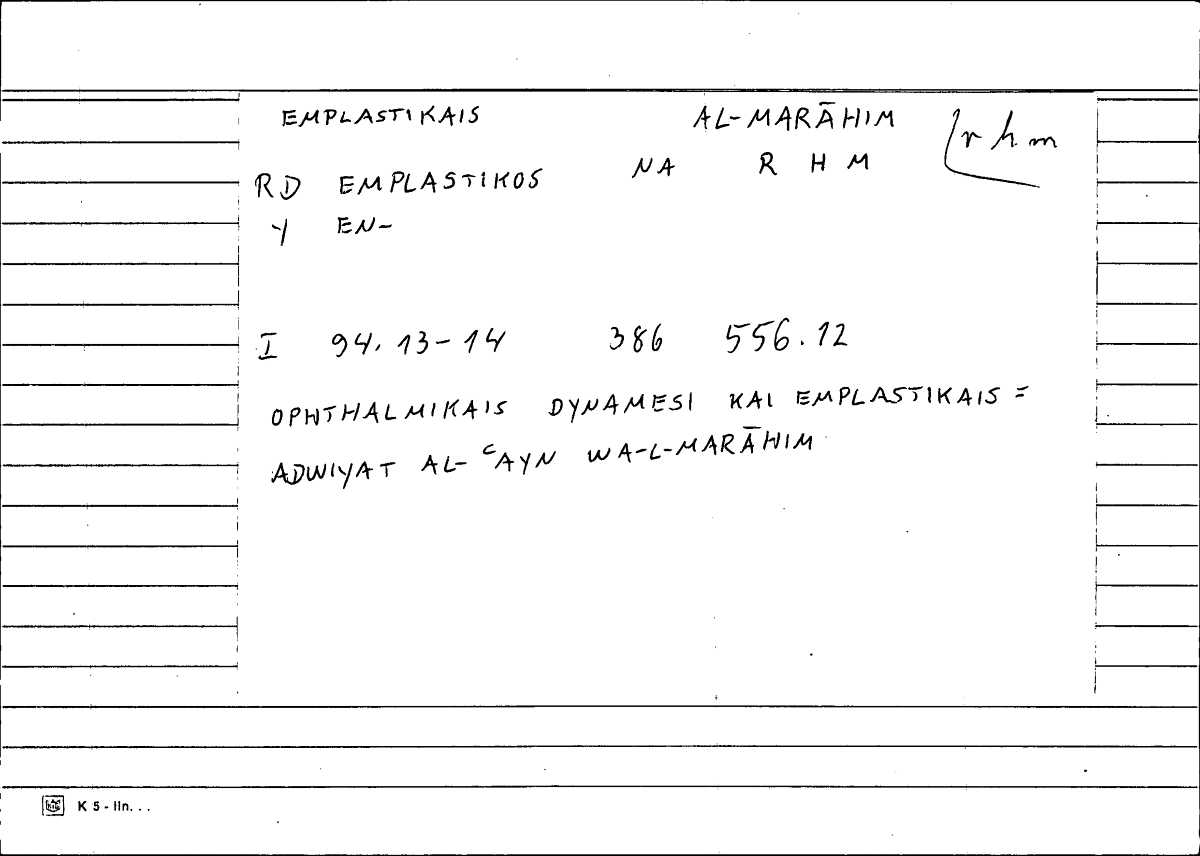 EMPLASTIKAIS AL-MARĀHIM √rhm
RD EMPLASTIKOS NA R H M
Y EN-
I 94.13-14 386 556.12
OPHTHALMIKAIS DYNAMESI KAI EMPLASTIKAIS =
ADWIYAT AL-ᶜAYN WA-L-MARĀHIM
K 5 - lin. . .